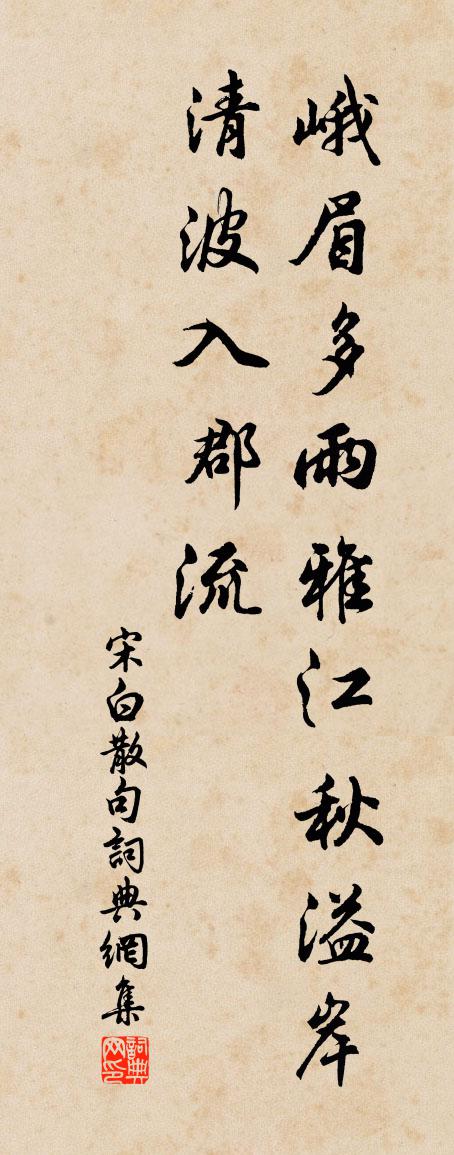 峨眉多雨雅江秋溢岸
清波入郡流
宋白散句詞典網集
詞典网印